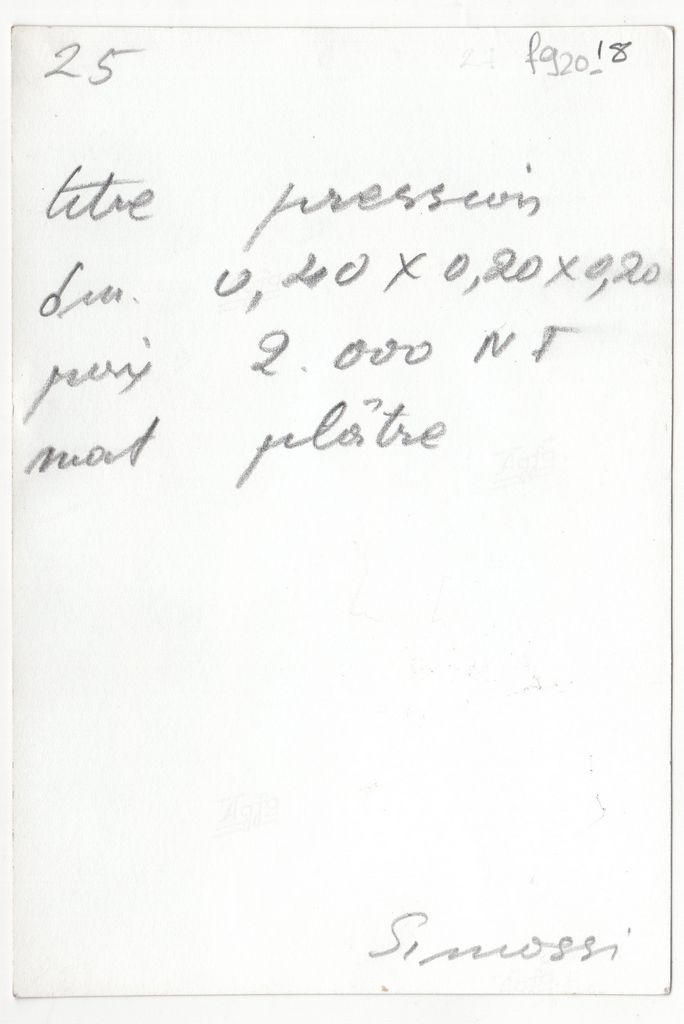 25 fg20-18
titre pression
dim. 0,40 X 0,20 X 0,20
prix 2.000 NF
mat plâtre
Agfa
Agfa
Simossi